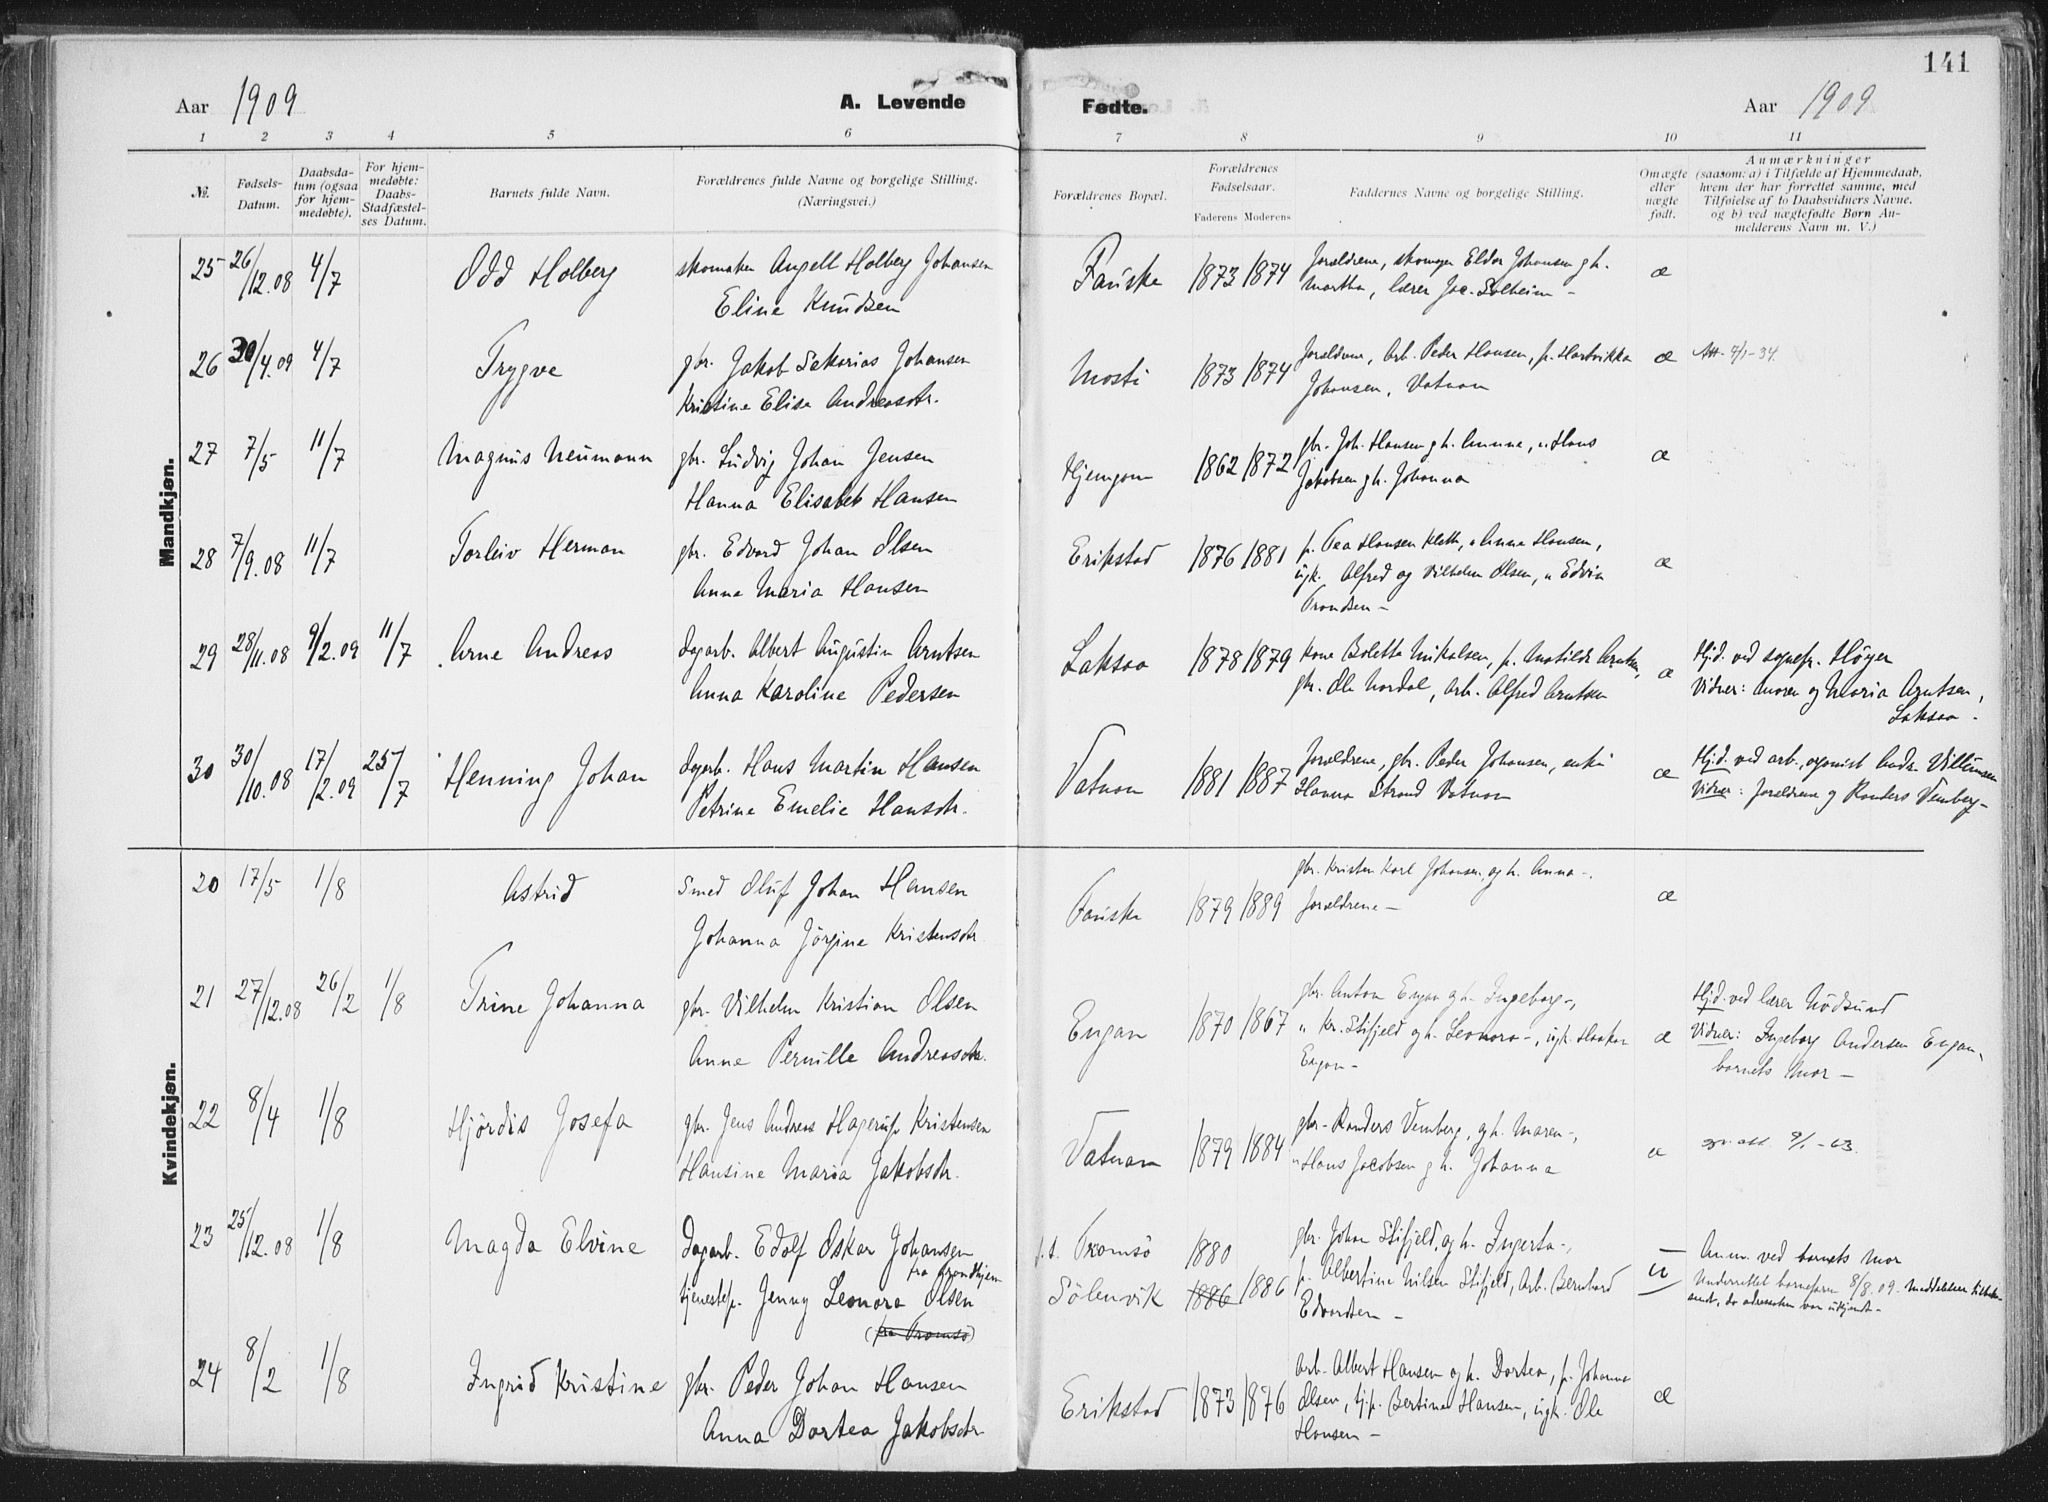 141
Aar 1909
A. Levende
Fødte.
Aar 1909
1 2 3 4 5 6 7 8 9 10 11
№.
Fødsels-
Datum.
Daabsda-
tum (ogsaa
for hjem-
medøbte).
For hjem-
medøbte:
Daabs-
Stadfæstel-
ses Datum.
Barnets fulde Navn.
Forældrenes fulde Navne og borgelige Stilling.
(Næringsvei.)
Forældrenes Bopæl.
Forældrenes
Fødselsaar.
Faderens Moderens
Faddernes Navne og borgelige Stilling.
Omægte
eller
uægte
født.
Anmærkninger
(saasom: a) i Tilfælde af Hjemmedaab,
hvem der har forrettet samme, med
Tilføielse af to Daabsvidners Navne.
og b) ved uægtefødte Børn An-
melderens Navn m. V.)
Mandkjøn.
25 26/12.08 4/7 Odd Holberg skomaker Angell Holberg Johansen Fauske 1873 1874 forældrene, skomager Eldor Johansen g h. æ
Eline Knudsen Martha, lærer Jac. Solheim -
26 30/4.09 4/7 Trygve gbr. Jakob Sakarias Johansen Mosti 1873 1874 forældrene, Arb. Peder Hansen, p. Hartvikka æ Att. 4/1-34
Kristine Elise Andreasdtr. Johansen, Vatnan
27 7/5 11/7 Magnus Neumann gbr. Ludvig Johan Jensen Hjemgam 1862 1872 gbr. Joh. Hansen g h. Annna, " Hans æ
Hanna Elisabet Hansen Jakobsen g h. Johanna
28 7/9.08 11/7 Torleiv Herman gbr. Edvard Johan Olsen Erikstad 1876 1881 p. Pea Hansen Klett, " Anna Hansen, æ
Anna Maria Hansen ugk. Alfred og Vilhelm Olsen, " Edvin
Trondsen -
29 28/11.08 9/2.09 11/7 Arne Andreas Dagarb. Albert Augustin Arntsen Laksaa 1878 1879 Kone Boletta Mikalsen, p. Matilde Arntsen, æ Hjd. ved sognepr. Høyer
Anna Karoline Pedersen gbr. Ole Nordal, Arb. Alfred Arntsen Vidner: moren og Maria Arntsen,
Laksaa -
30 30/10.08 17/2.09 25/7 Henning Johan Dagarb. Hans Martin Hansen Vatnan 1881 1887 forældrene, gbr. Peder Johansen, enke æ Hjd. ved arb., organist Andr. Villumsen
Petrine Emelie Hansdtr. Hanna Strand Vatnan Vidner: forældrene og Randers Vemberg -
Kvindekjøn.
20 17/5 1/8 Astrid Smed Oluf Johan Hansen Fauske 1879 1889 gbr. Kristen Karl Johansen, og h. Anna -. æ
Johanna Jörgine Kristensdtr forældrene -
21 27/12.08 26/2 1/8 Trine Johanna gbr. Vilhelm Kristian Olsen Engan 1870 1867 gbr. Anton Engan g h. Ingeborg -, æ Hjd. ved lærer Nödsund
Anne Pernille Andreasdtr. " Kr. Stifjeld og h. Leonora -, ugk. Haakon Vidner: Ingeborg Andersen Engan,
Engan - barnets mor -
22 8/4 1/8 Hjördis Josefa gbr. Jens Andreas Hagerup Kristensen Vatnan 1879 1884 gbr. Randers Vemberg, og h. Maren -, æ att. 9/1-63.
Hansine Maria Jakobsdtr. " Hans Jacobsen g h. Johanna
23 25/12.08 1/8 Magda Elvine Dagarb. Edolf Oskar Johansen f.t. Tromsö 1880 gbr. Johan Stifjeld, og h. Ingerta -, u Anm. ved barnets mor
fra Trondhjem
tjenestep. Jenny Leonora Olsen Sölenvik 1886 1886 p. Albertine Nilsen Stifjeld, Arb. Bernhard Underrettet barnefaren 8/8.09.
(fra Tromsö) Edvardsen - da adressaten var ukjendt -
24 8/2 1/8 Ingrid Kristine gbr. Peder Johan Hansen Erikstad 1873 1876 Arb. Albert Hansen og h. Dortea, p. Johanna æ
Anna Dortea Jakobsdtr Olsen, tj.p. Bertine Hansen, ugk. Ole
Hansen -